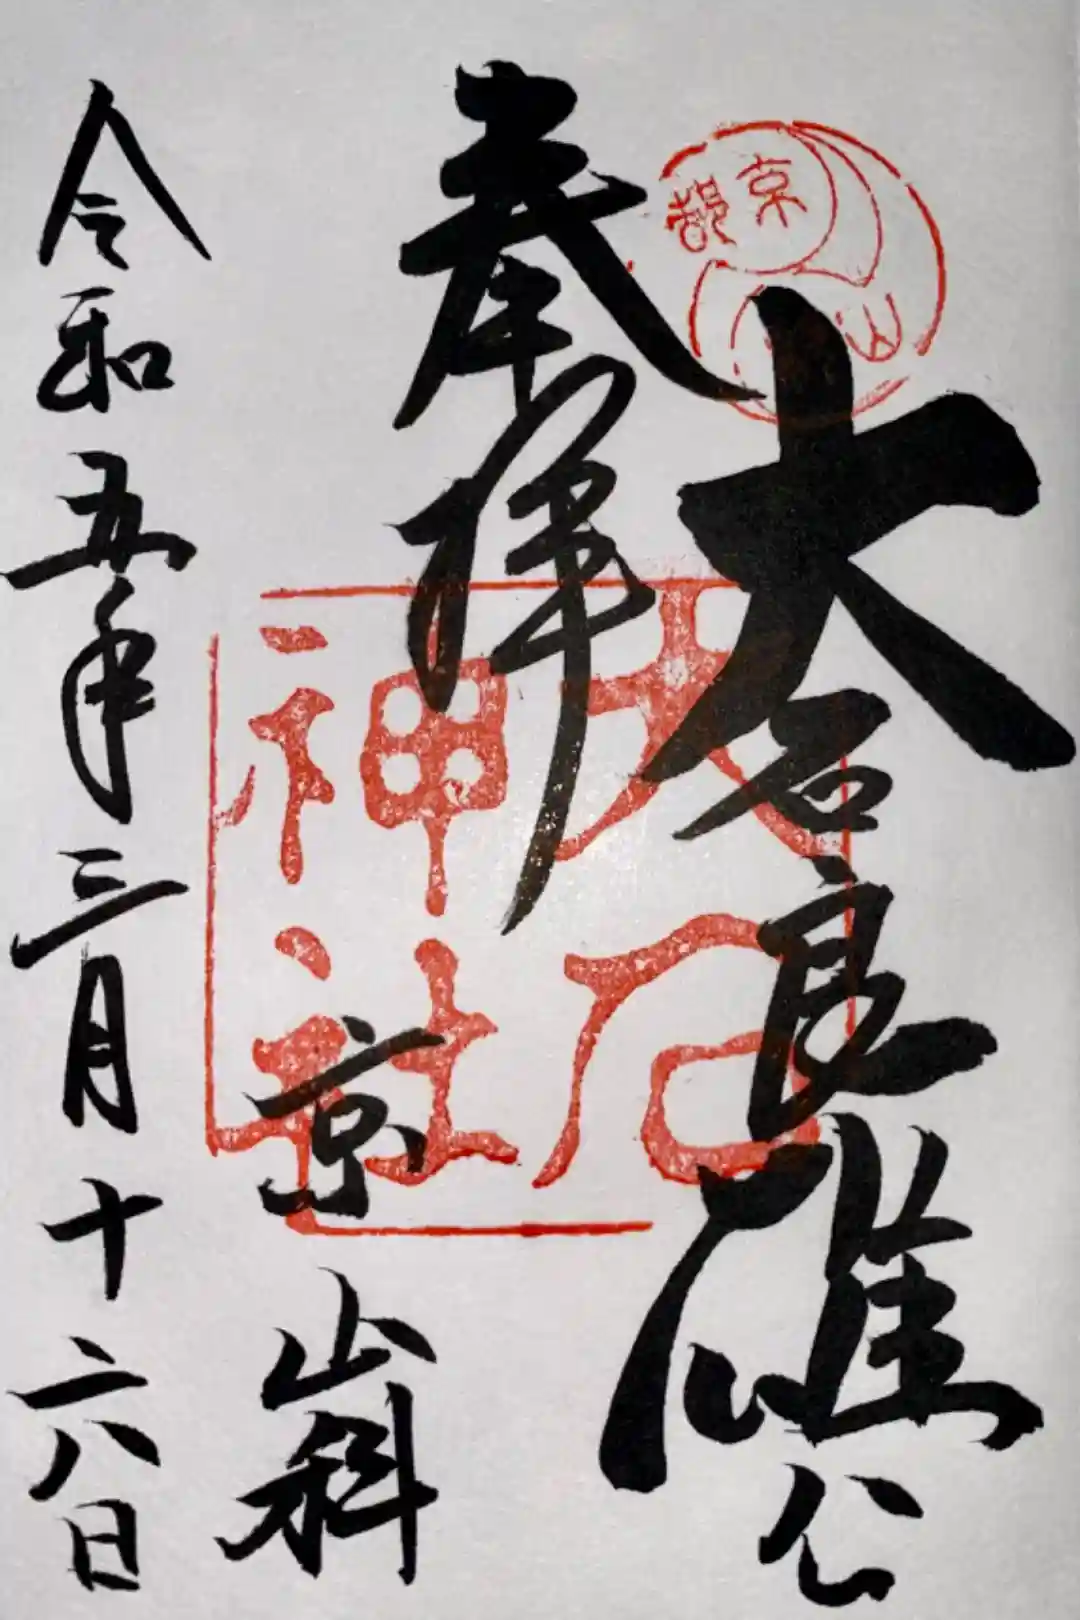 京都
山
大石良雄公
奉拝
大石
神社
京 山科
令和五年三月十六日